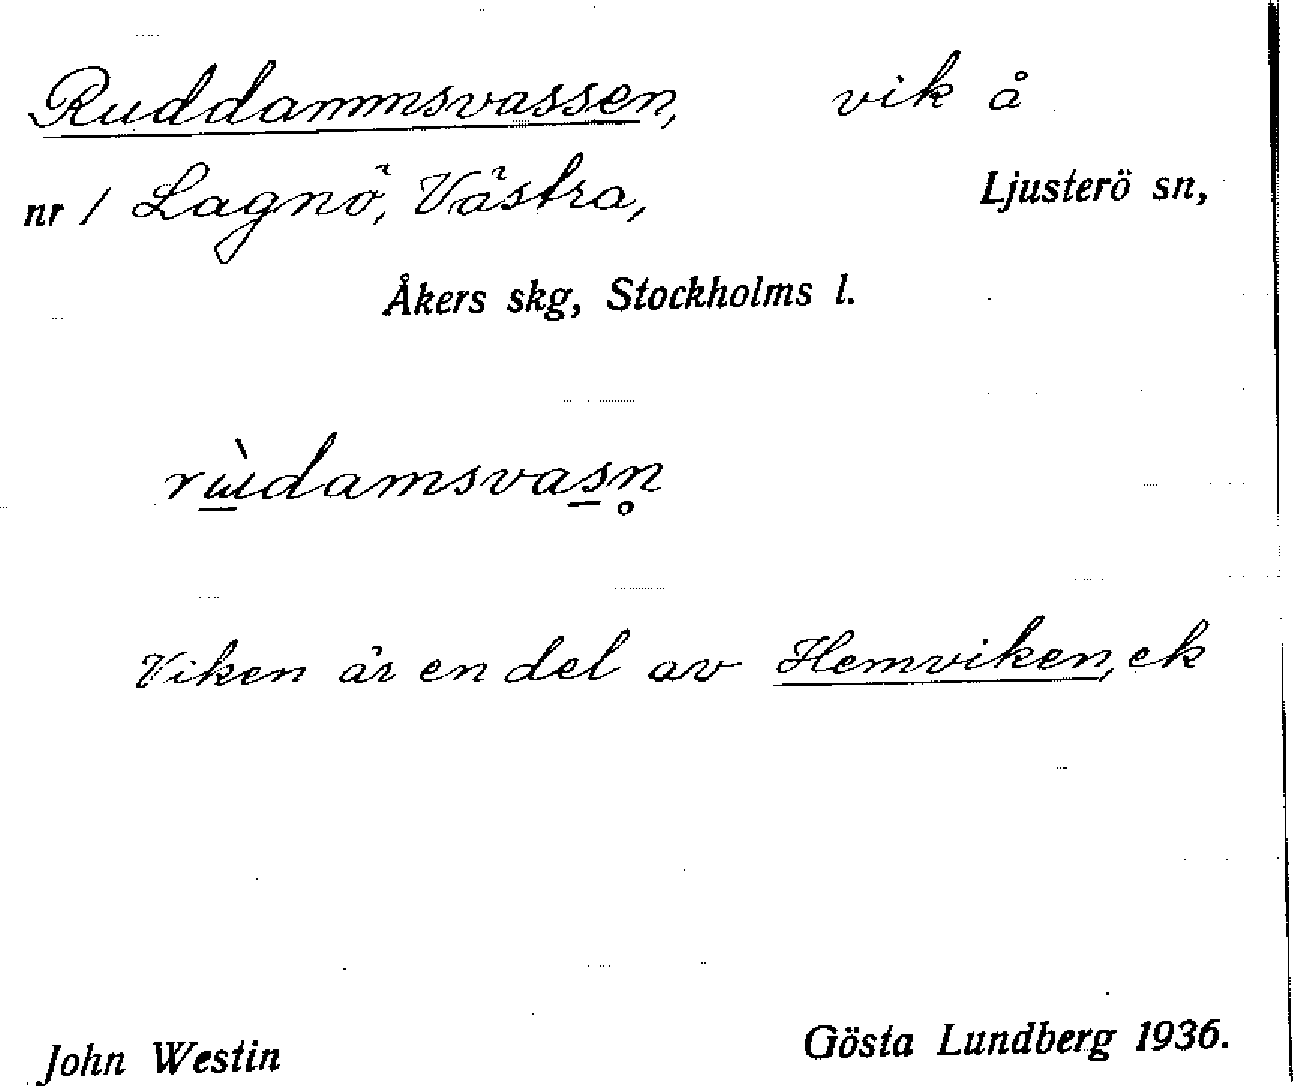 Ruddammsvassen, vik å
nr 1 Lagnö, Västra, Ljusterö sn,
Åkers skg, Stockholms l.
rɯ̱̀damsvas̱n̥
Viken är en del av Hemviken, ek
John Westin Gösta Lundberg 1936.